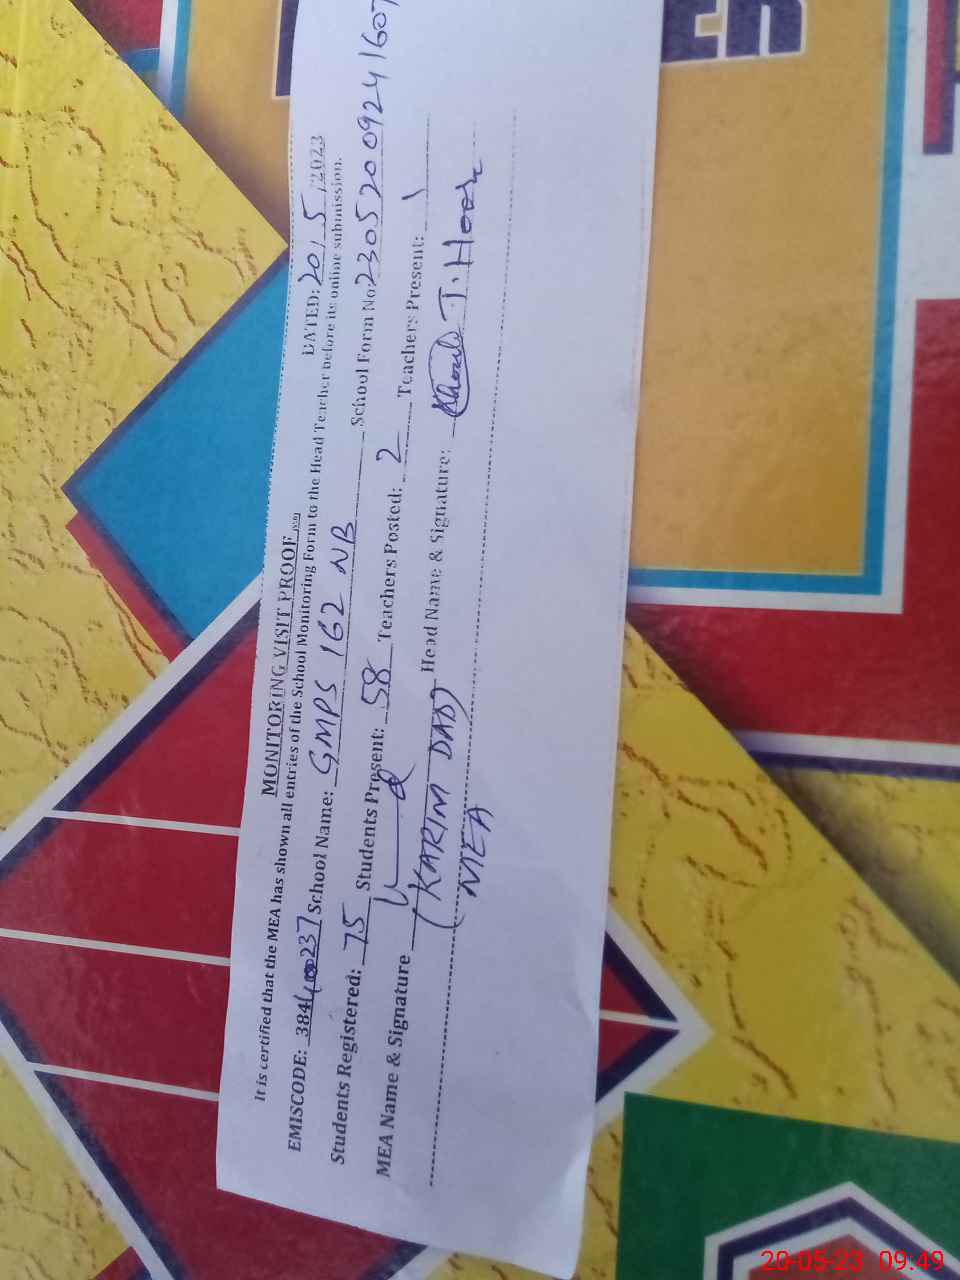 ER
MONITORING VISIT PROOF
DATED: 20/5/2023
It is certified that the MEA has shown all entries of the School Monitoring Form to the Head Teacher before its online submission.
EMISCODE: 38440237 School Name: GMPS 162 NB School Form No:
Students Registered: 75 Students Present: 58 Teachers Posted: 2 Teachers Present: 1
MEA Name & Signature Head Name & Signature:
(KARIM DAD)
MEA
20-05-23 09:49